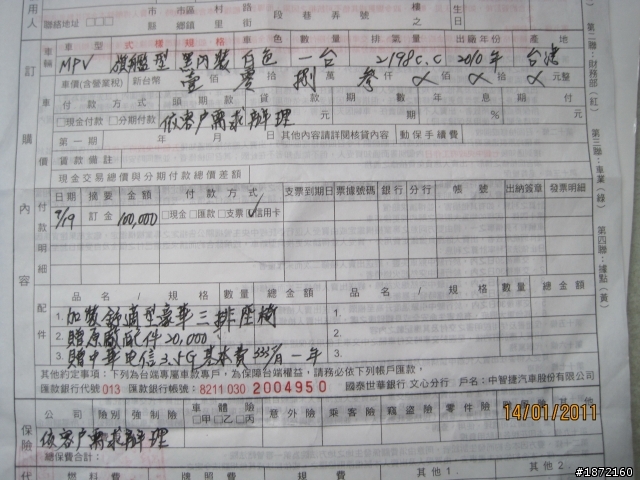 用人
聯絡地址
市 市區 村 路 段 巷 弄 號 樓之
縣 縣鎮 里 街
生日
車輛 車型 式樣規格 車色 數量 排氣量 出廠年份 產地
MPV 旗艦型 黑內裝 白色 一台 2198c.c 2010年 台灣
車價(含營業稅) 新台幣 壹 零 捌 參 仟 佰 拾 元整
付款方式 頭期款 貸款金額 年數 年 息 期付款
□現金付款 □分期付款 依客戶需求辦理 元 % 元
第一期 年 月 日 其他內容請詳閱核貸內容 動保手續費
貨款備註
現金交易總價與分期付款總價差額
日期 摘要 金額 付款方式 支票到期日 票據號碼 銀行 分行 帳號 出納簽章 發票明細
訂金 100,000 □現金 □匯款 □支票 ☑信用卡
訂購內容
車價
付款明細
配件
品名/規格 數量 總金額 品名/規格 數量 總金額
1. 加裝舒適型豪華三排座椅 1.
2. 贈原廠配件20,000 2.
3. 贈中華電信3.5G基本費 月一年 3.
其他約定事項：下列為台端專屬車款專戶，為保障台端權益，請務必依下列帳戶匯款，
匯款銀行代號 013 匯款銀行帳號： 8211 030 2004950 國泰世華銀行 文心分行 戶名：中智捷汽車股份有限公司
保險 公司 險別 強制險 車體險 □甲□乙□丙 意外險 乘客險 竊盜險 零件險 其他
依客戶需求辦理
總保費合計：
代 燃料費 牌照稅 規費 其他1. 其他2.
第二聯：財務部(紅) 第三聯：車業(綠) 第四聯：據點(黃)
14/01/2011
#1872160